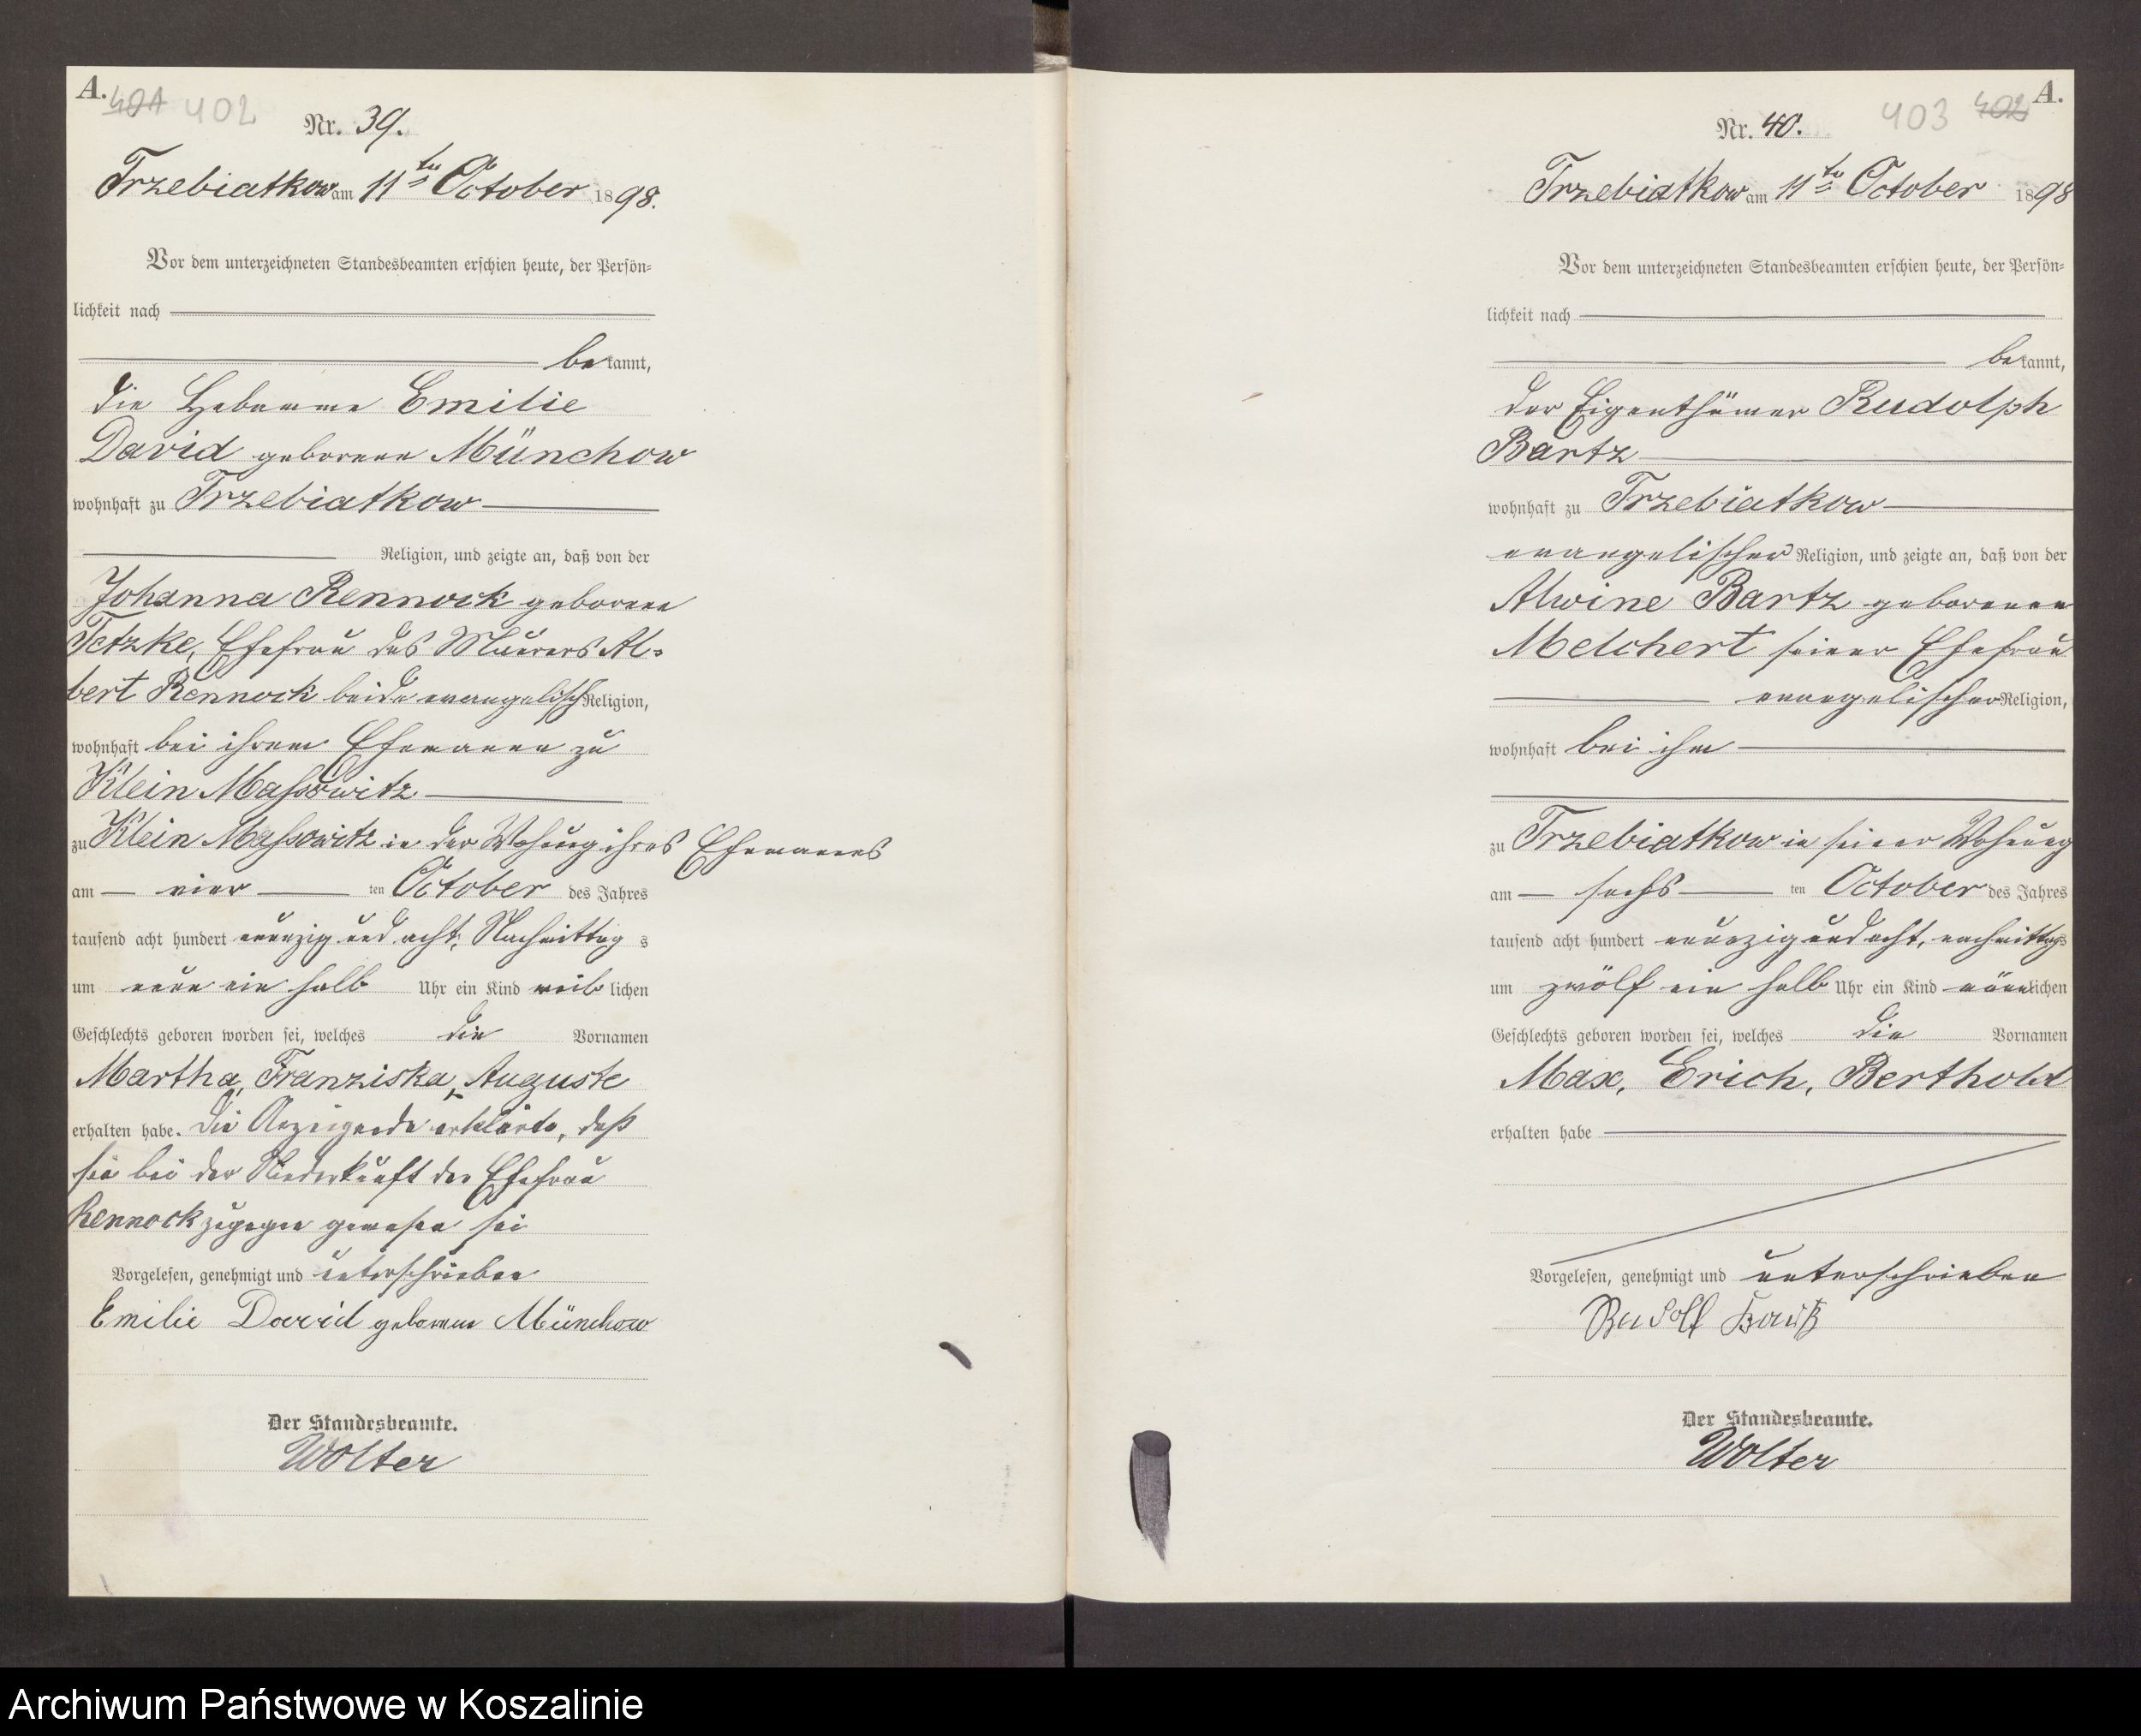 A.
401 402
Nr. 39.
Trzebiatkow am 11ten October 1898.
Vor dem unterzeichneten Standesbeamten erschien heute, der Persön=
lichkeit nach
bekannt,
die Hebamme Emilie
David geborene Münchow
wohnhaft zu Trzebiatkow
Religion, und zeigte an, daß von der
Johanna Rennock geborene
Tetzke, Ehefrau des Maurers Al=
bert Rennock beide evangelisch Religion,
wohnhaft bei ihrem Ehemanne zu
Klein Massowitz
zu Klein Massowitz in der Wohnung ihres Ehemannes
am vier ten October des Jahres
tausend acht hundert neunzig und acht, Nachmittag s
um neun ein halb Uhr ein Kind weiblichen
Geschlechts geboren worden sei, welches die Vornamen
Martha, Franziska, Auguste
erhalten habe. Die Anzeigende erklärte, daß
sie bei der Niederkunft der Ehefrau
Rennock zugegen gewesen sei
Vorgelesen, genehmigt und unterschrieben
Emilie David geborene Münchow
Der Standesbeamte.
Wolter
403 402 A.
Nr. 40.
Trzebiatkow am 11ten October 1898
Vor dem unterzeichneten Standesbeamten erschien heute, der Persön=
lichkeit nach
bekannt,
der Eigenthümer Rudolph
Bartz
wohnhaft zu Trzebiatkow
evangelischer Religion, und zeigte an, daß von der
Alwine Bartz geborenen
Melchert seiner Ehefrau
evangelischer Religion,
wohnhaft bei ihm
zu Trzebiatkow in seiner Wohnung
am sechs ten October des Jahres
tausend acht hundert neunzig und acht, nachmittags
um zwölf ein halb Uhr ein Kind männlichen
Geschlechts geboren worden sei, welches die Vornamen
Max, Erich, Berthold
erhalten habe
Vorgelesen, genehmigt und unterschrieben
Rudolf Bartz
Der Standesbeamte.
Wolter
Archiwum Państwowe w Koszalinie